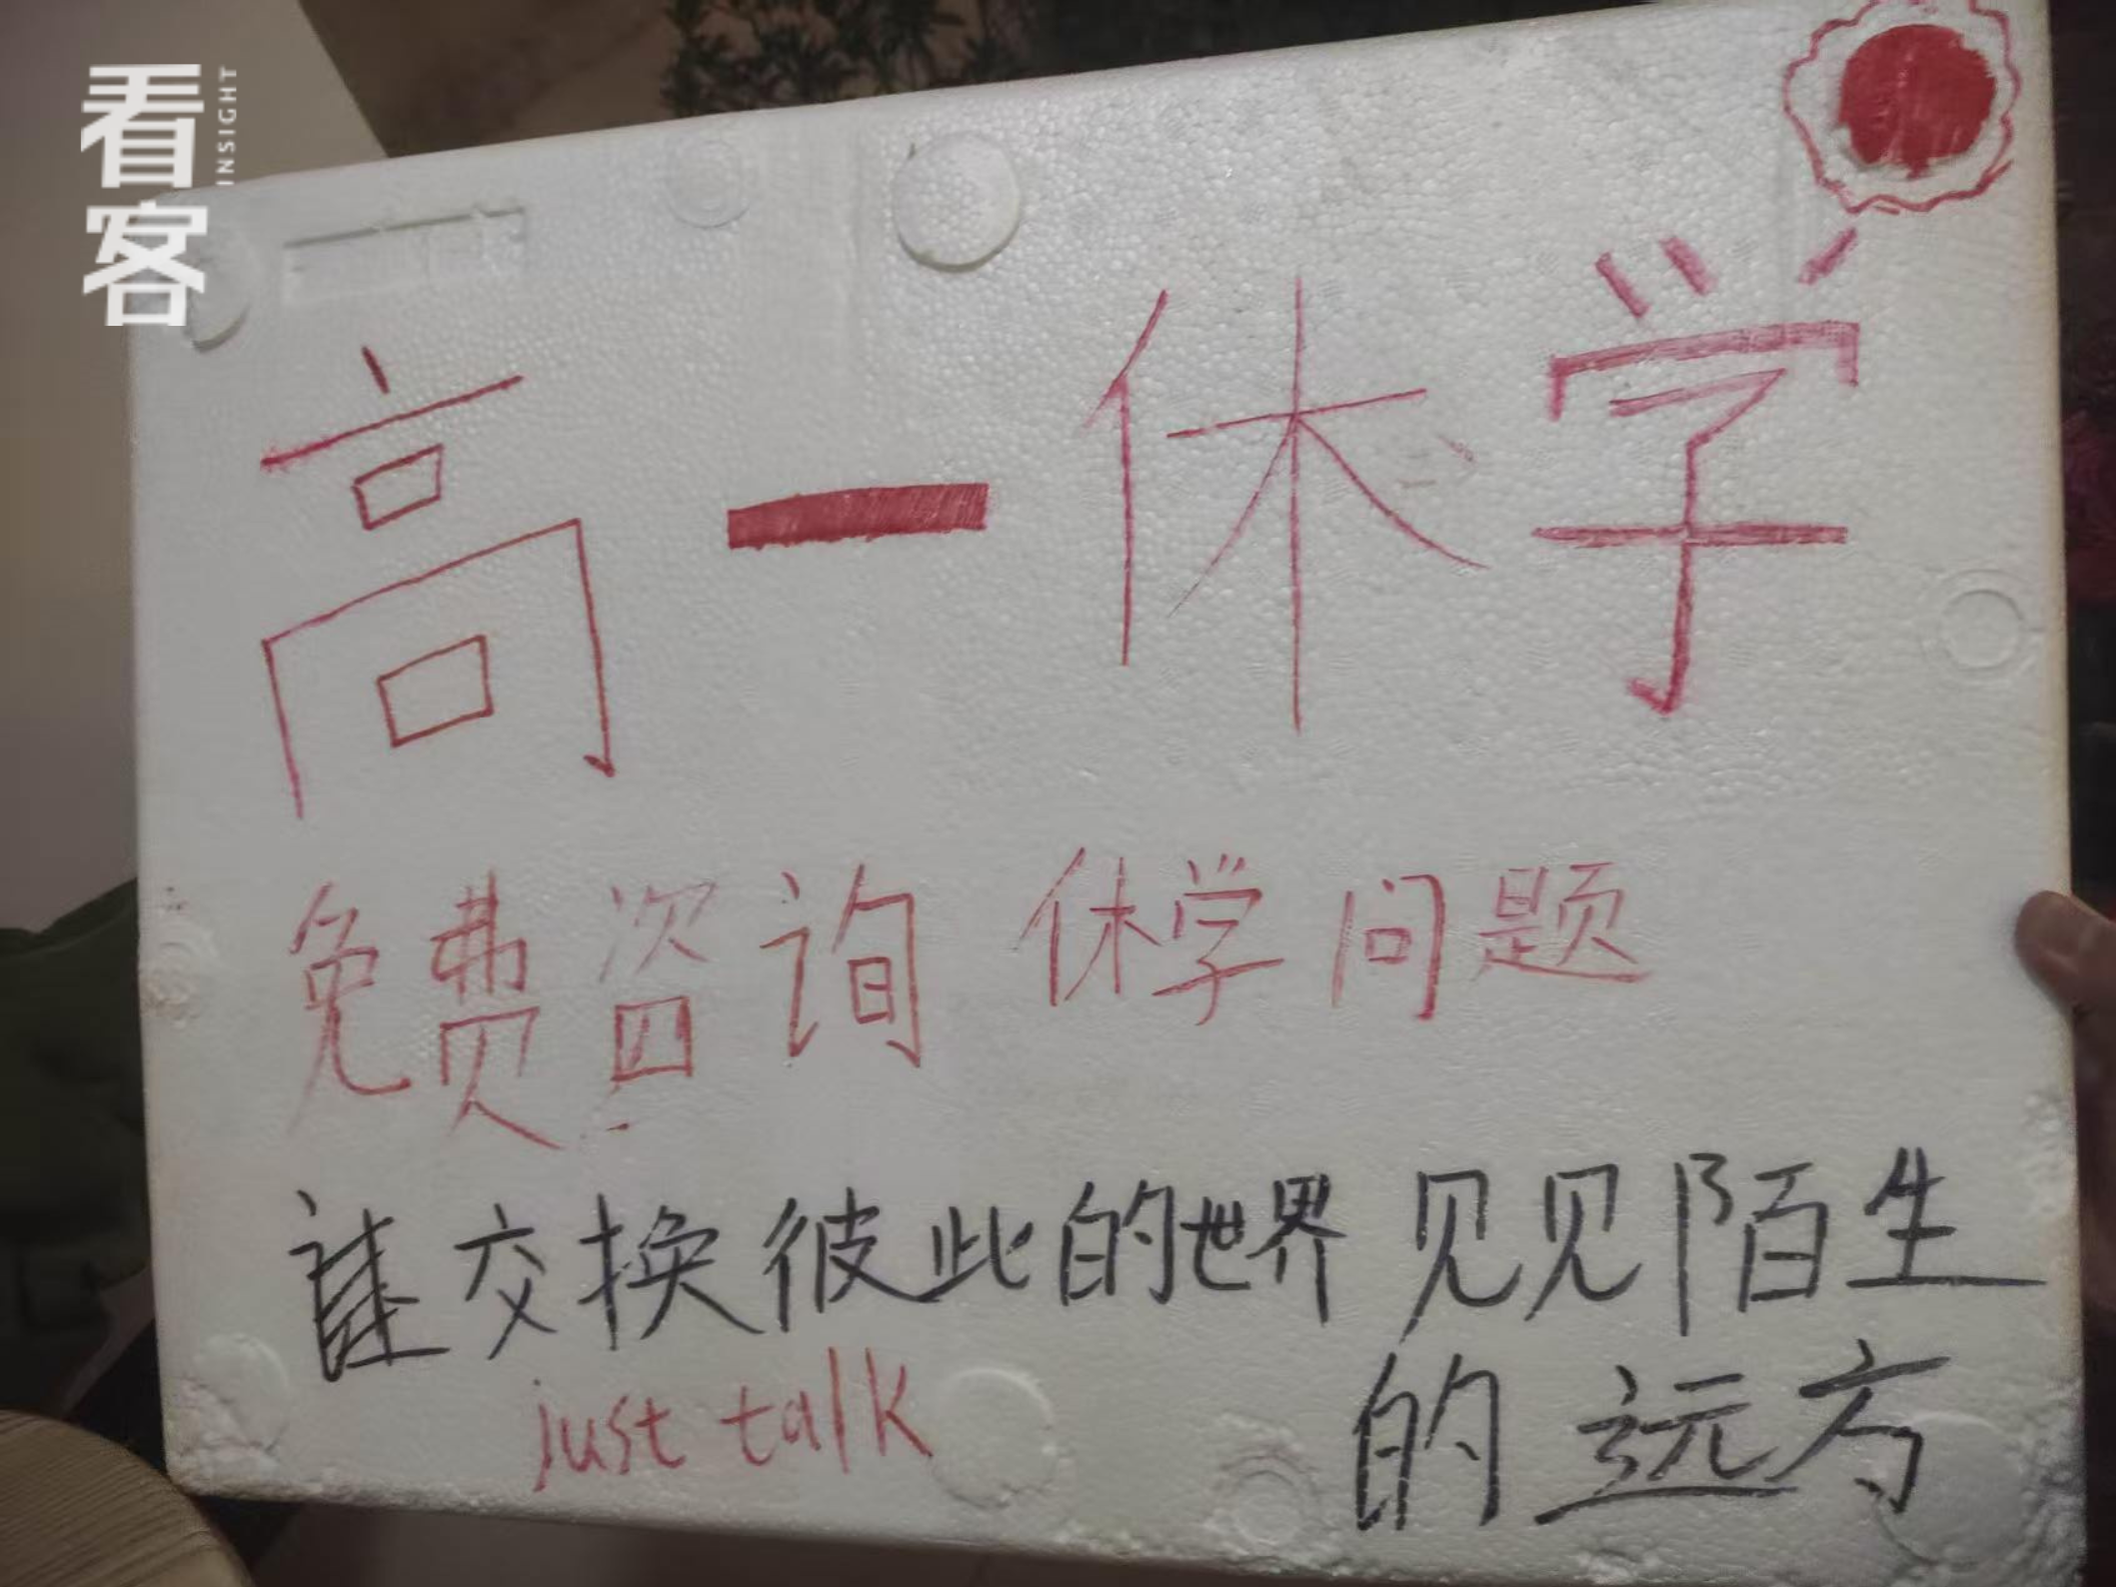 看客
INSIGHT
高一休学
免费咨询 休学问题
交换彼此的世界 见见陌生
的远方
just talk